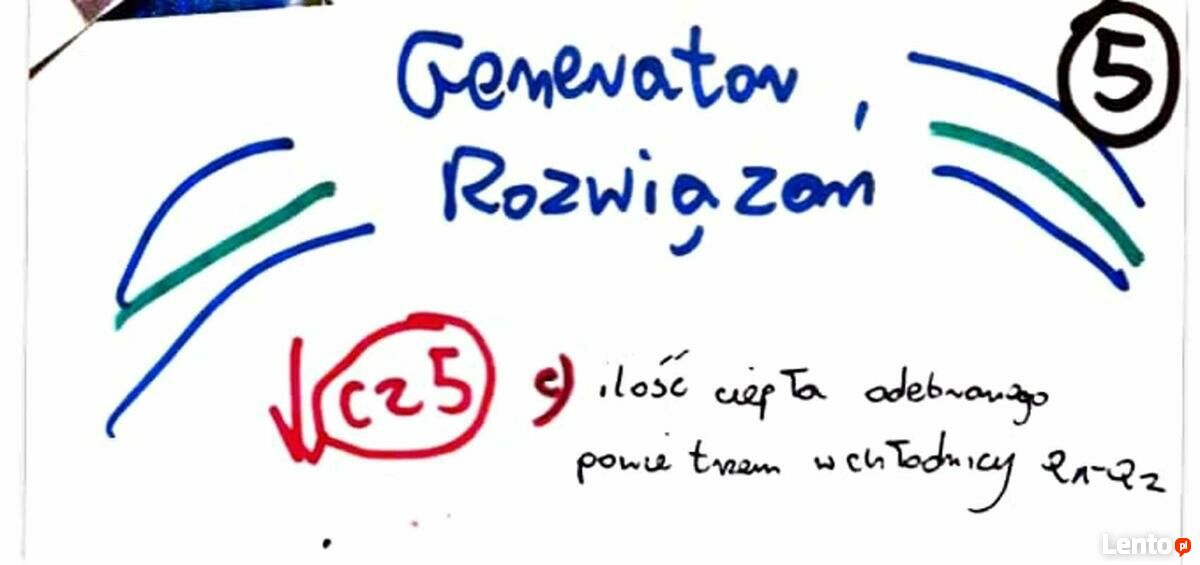 Generator
5
Rozwiązań
cz 5 c) ilość ciepła odebranego
powietrzem w chłodnicy Q1-Q2
Lento.pl